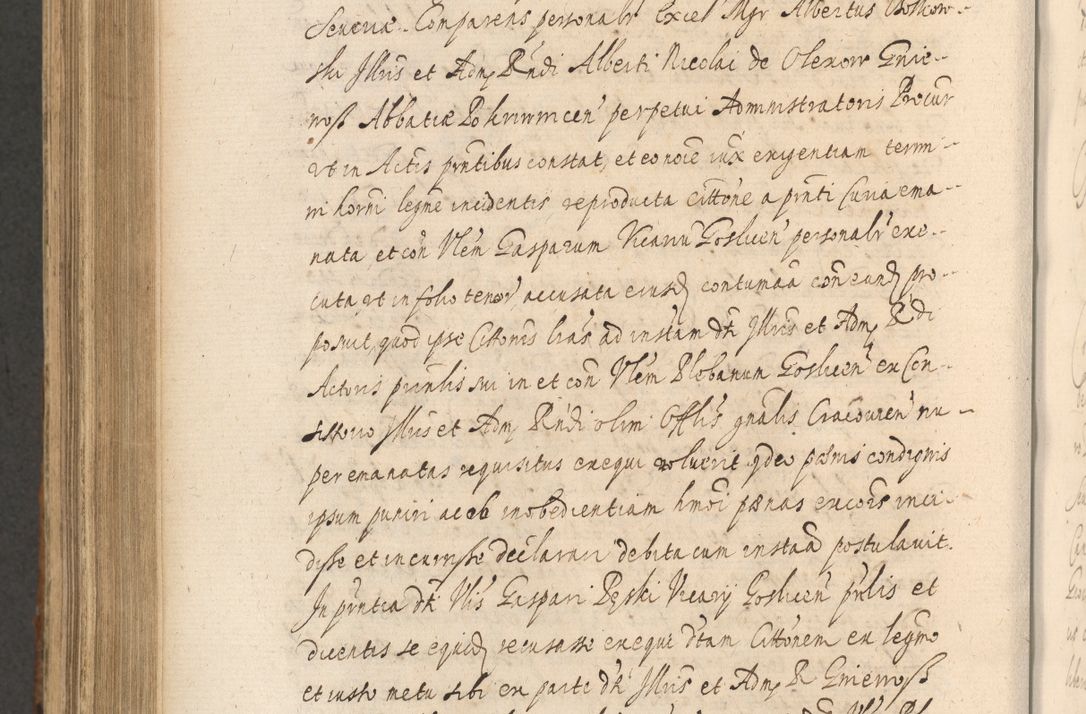 Seneciæ. Comparens personalr Excel Mgr Albertus Boskow-
ski Jllris et Adm Rndi Alberti Nicolai de Olexow Gnie-
wosz Abbatiæ Pokrziwnicen perpetui Administratoris Procur
ut in Actis prntibus constat, et eo noie iux exigentiam termi-
ni horni legme incidentis reproducta cittone a prnti Curia ema-
nata, et con Vlem Gasparum Vicarium Goslicen personalr exe-
cuta, ut in folio tenor accusata eiusd contumaa con eund pro-
posuit, quod ipse Cittonis lras ad instam dti Jllris et Adm Rndi
Actoris prinlis sui in et con Vlem Plebanum Goslicen ex Con-
sistorio Jllris et Adm Rndi olim Offlis gnalis Cracovien nu-
per emanatas requisitus exequi noluerit qdeo pænis condignis
ipsum puniri ac ob inobedientiam hmoi pænas excois inci-
disse et incurrisse declarari debita cum instaa postulavit.
In prntia dti Vlis Gaspari Pęski Vicarij Goslicen prlis et
dicentis se equid recusasse exequi dtam Cittonem ex legmo
et iusto metu sibi ex parte dti Jllris et Adm R Gniewosz